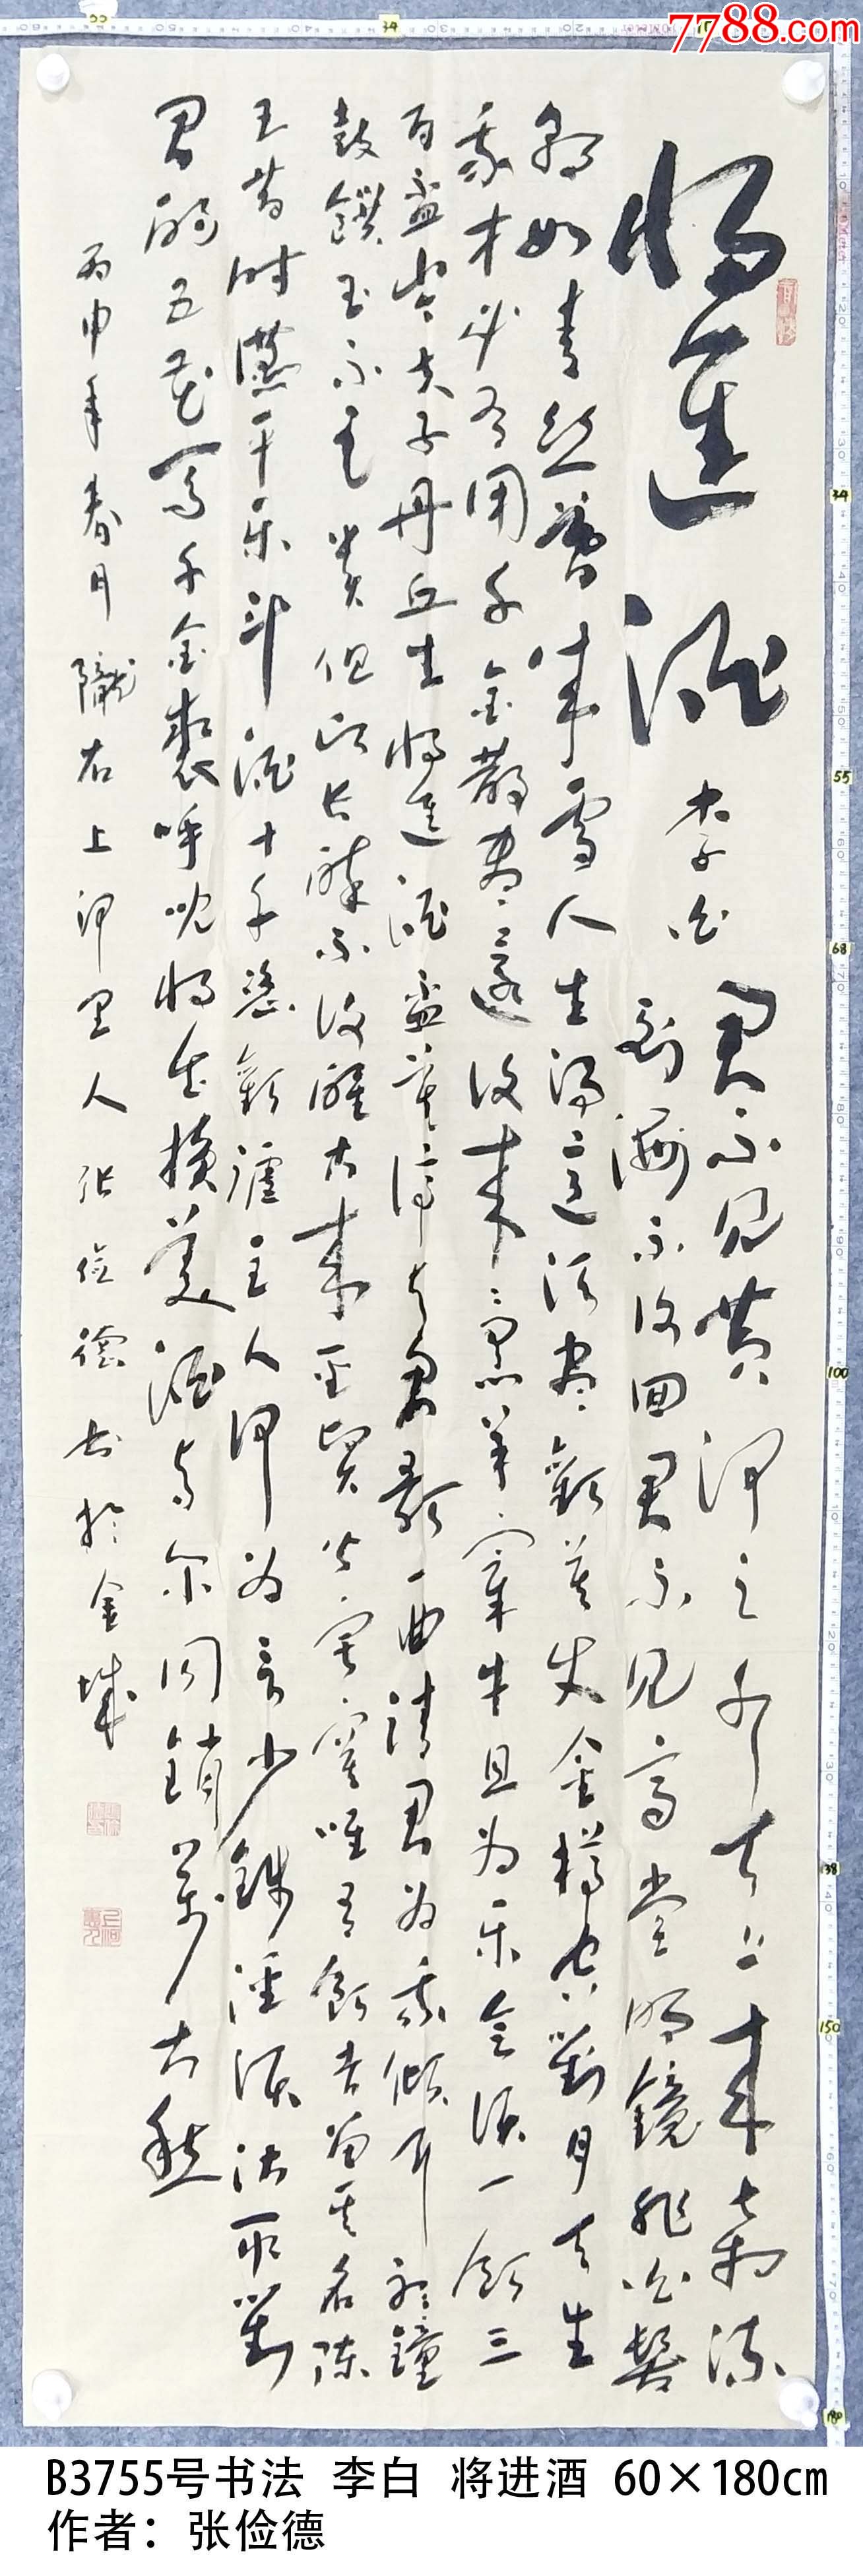 将進酒
李白
君不见黄河之水天上来奔流
到海不復回君不见高堂明鏡悲白髮
朝如青丝暮成雪人生得意须盡歡莫使金樽空對月天生
我才必有用千金散盡還復来烹羊宰牛且为乐會须一飲三
百盃岑夫子丹丘生将進酒盃莫停与君歌一曲請君为我倾耳聽鐘
鼓饌玉不足貴但願长醉不復醒古来聖賢皆寂寞唯有飲者留其名陳
王昔时讌平乐斗酒十千恣歡謔主人何为言少錢徑须沽取對
君酌五花马千金裘呼児将出换美酒与尔同銷萬古愁
丙申年春月隴右上河里人张俭德书於金城
7788.com
B3755号书法 李白 将进酒 60×180cm
作者：张俭德